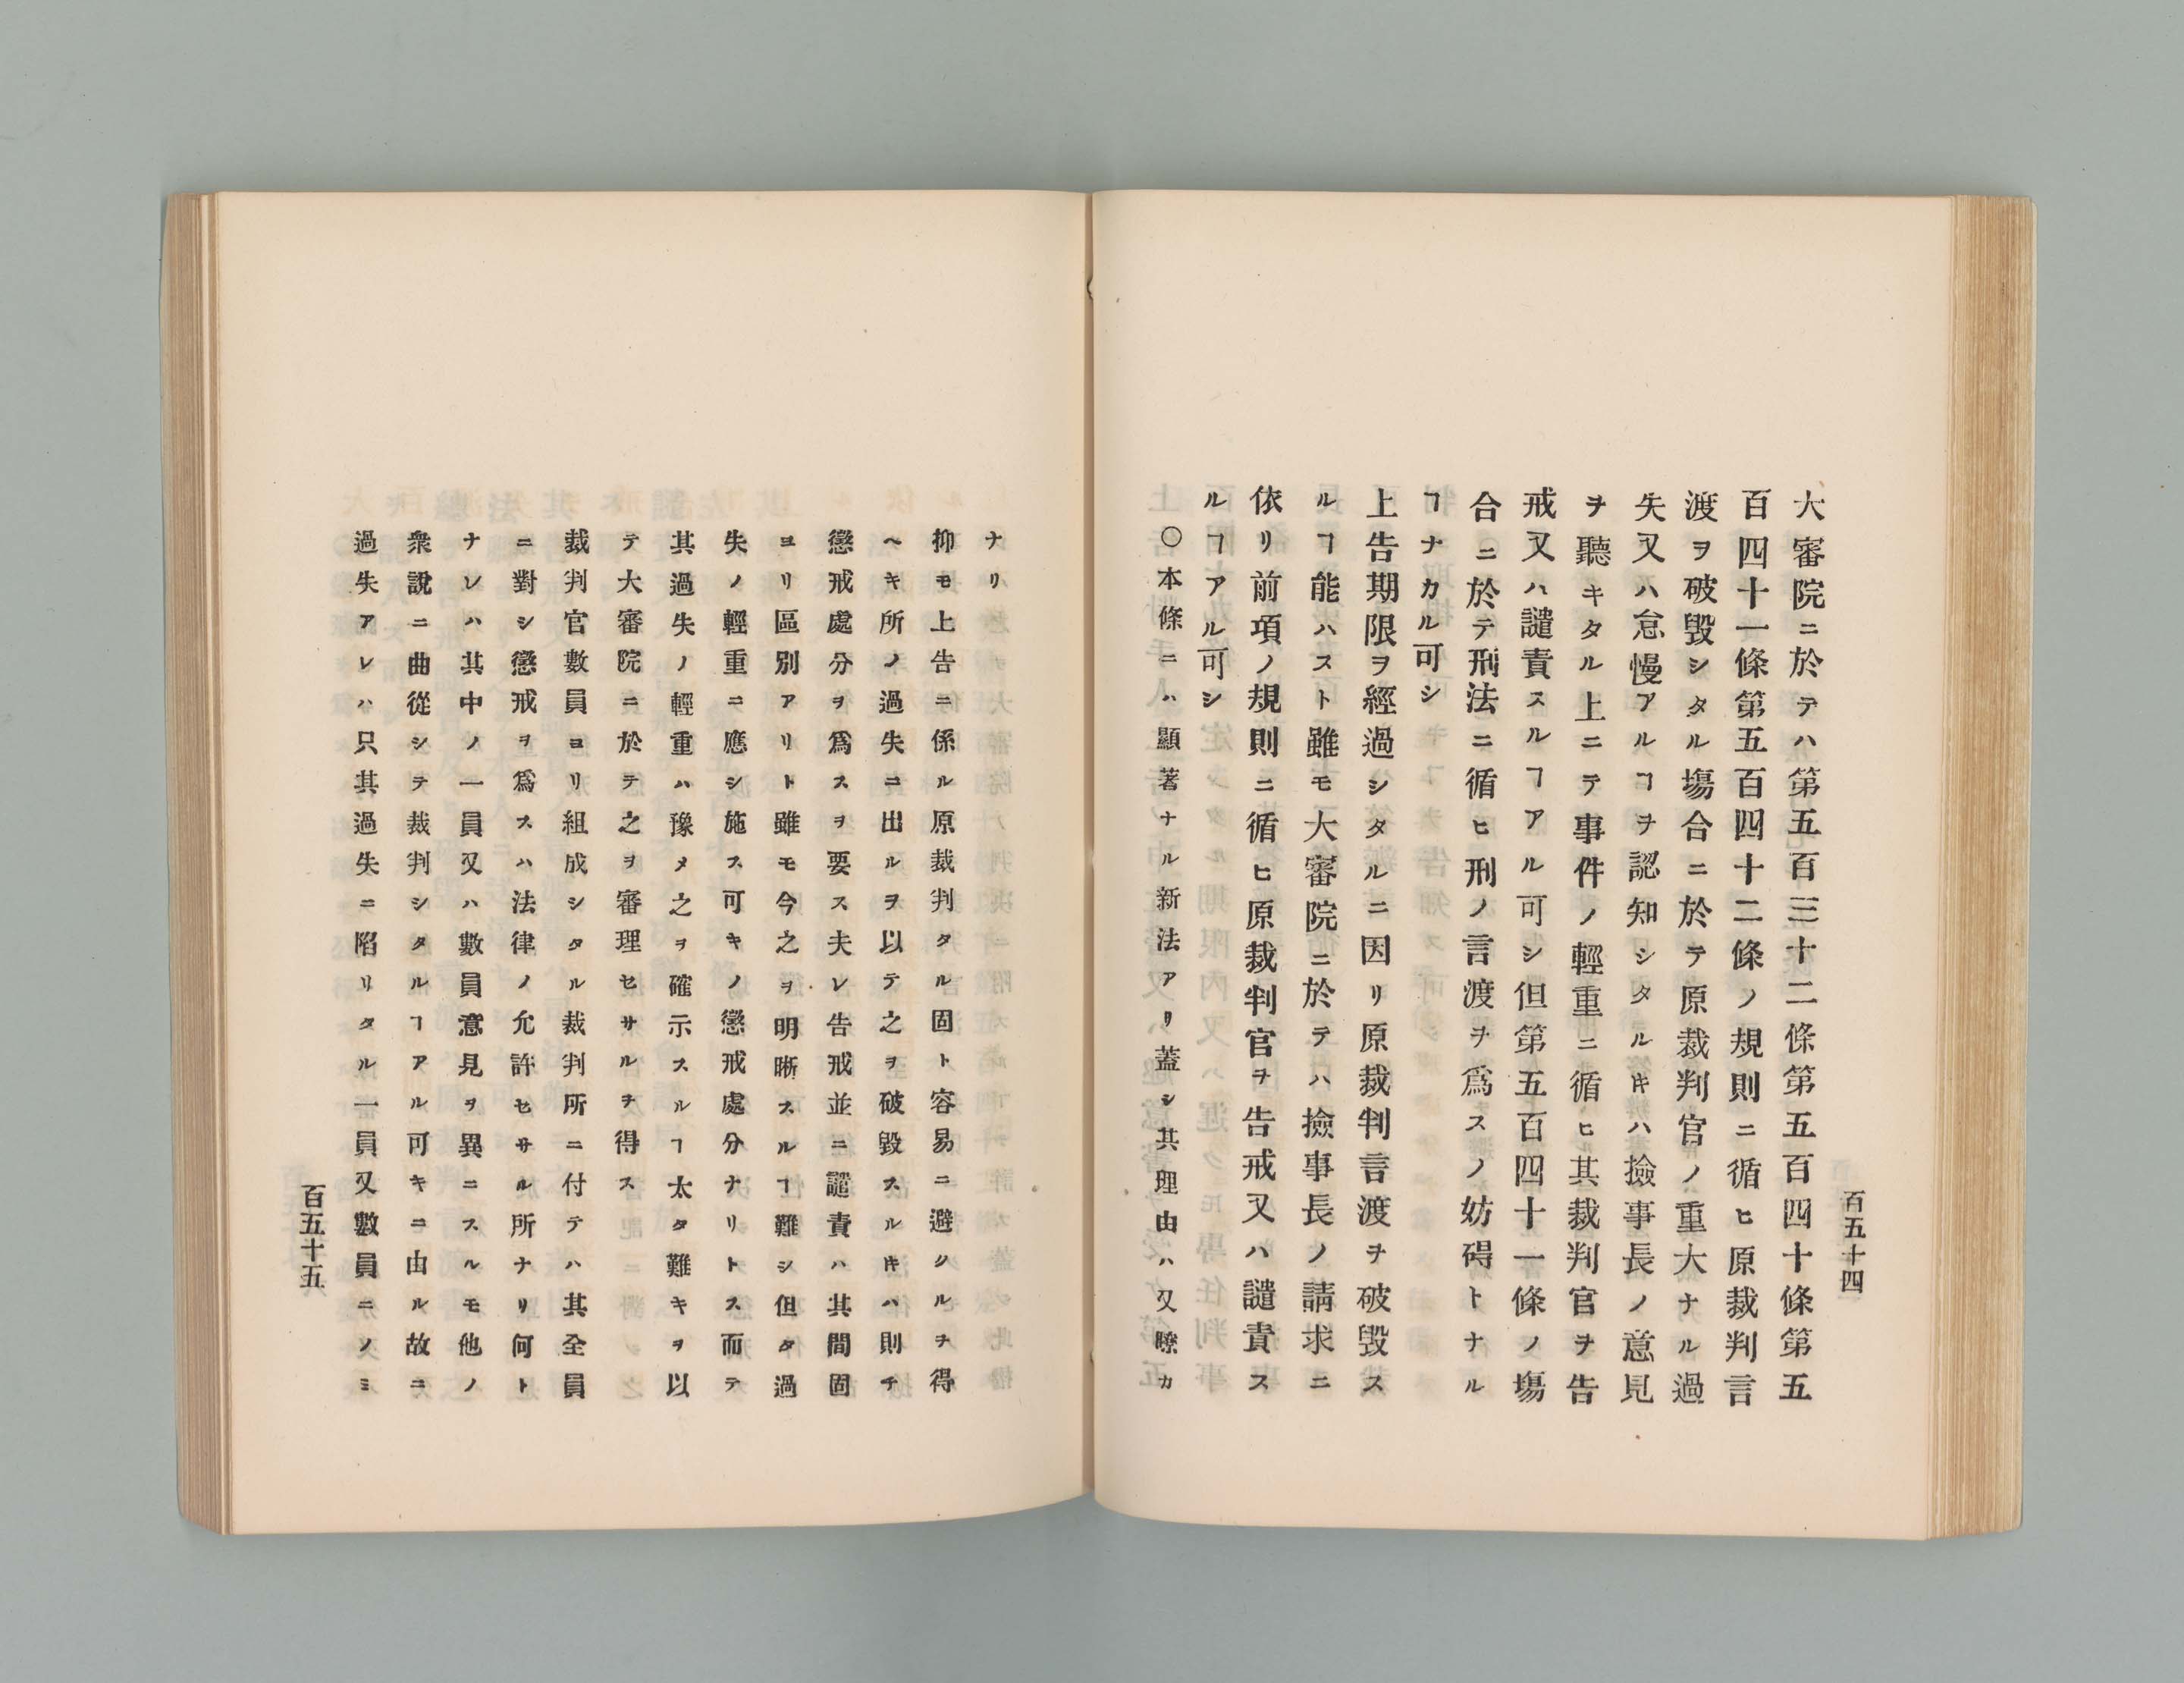 百五十四
大審院ニ於テハ第五百三十二條第五百四十條第五
百四十一條第五百四十二條ノ規則ニ循ヒ原裁判言
渡ヲ破毀シタル塲合ニ於テ原裁判官ノ重大ナル過
失又ハ怠慢アルヿヲ認知シタル㸿ハ撿事長ノ意見
ヲ聽キタル上ニテ事件ノ輕重ニ循ヒ其裁判官ヲ告
戒又ハ譴責スルヿアル可シ但第五百四十一條ノ塲
合ニ於テ刑法ニ循ヒ刑ノ言渡ヲ爲スノ妨碍トナル
ヿナカル可シ
上告期限ヲ經過シタルニ因リ原裁判言渡ヲ破毀ス
ルヿ能ハスト雖モ大審院ニ於テハ撿事長ノ請求ニ
依リ前項ノ規則ニ循ヒ原裁判官ヲ告戒又ハ譴責ス
ルヿアル可シ
〇本條ニハ顯著ナル新法アリ蓋シ其理由ハ又瞭カ
ナリ
抑モ上告ニ係ル原裁判タル固ト容易ニ避クルヲ得
ヘキ所ノ過失ニ出ルヲ以テ之ヲ破毀スル㸿ハ則チ
懲戒處分ヲ爲スヲ要ス夫レ告戒並ニ譴責ハ其間固
ヨリ區別アリト雖モ今之ヲ明晰スルヿ難シ但タ過
失ノ輕重ニ應シ施ス可キノ懲戒處分ナリトス而テ
其過失ノ輕重ハ豫メ之ヲ確示スルヿ太タ難キヲ以
テ大審院ニ於テ之ヲ審理セサルヲ得ス
裁判官數員ヨリ組成シタル裁判所ニ付テハ其全員
ニ對シ懲戒ヲ爲スハ法律ノ允許セサル所ナリ何ト
ナレハ其中ノ一員又ハ數員意見ヲ異ニスルモ他ノ
衆說ニ曲從シテ裁判シタルヿアル可キニ由ル故ニ
過失アレハ只其過失ニ陷リタル一員又數員ニノミ
百五十五